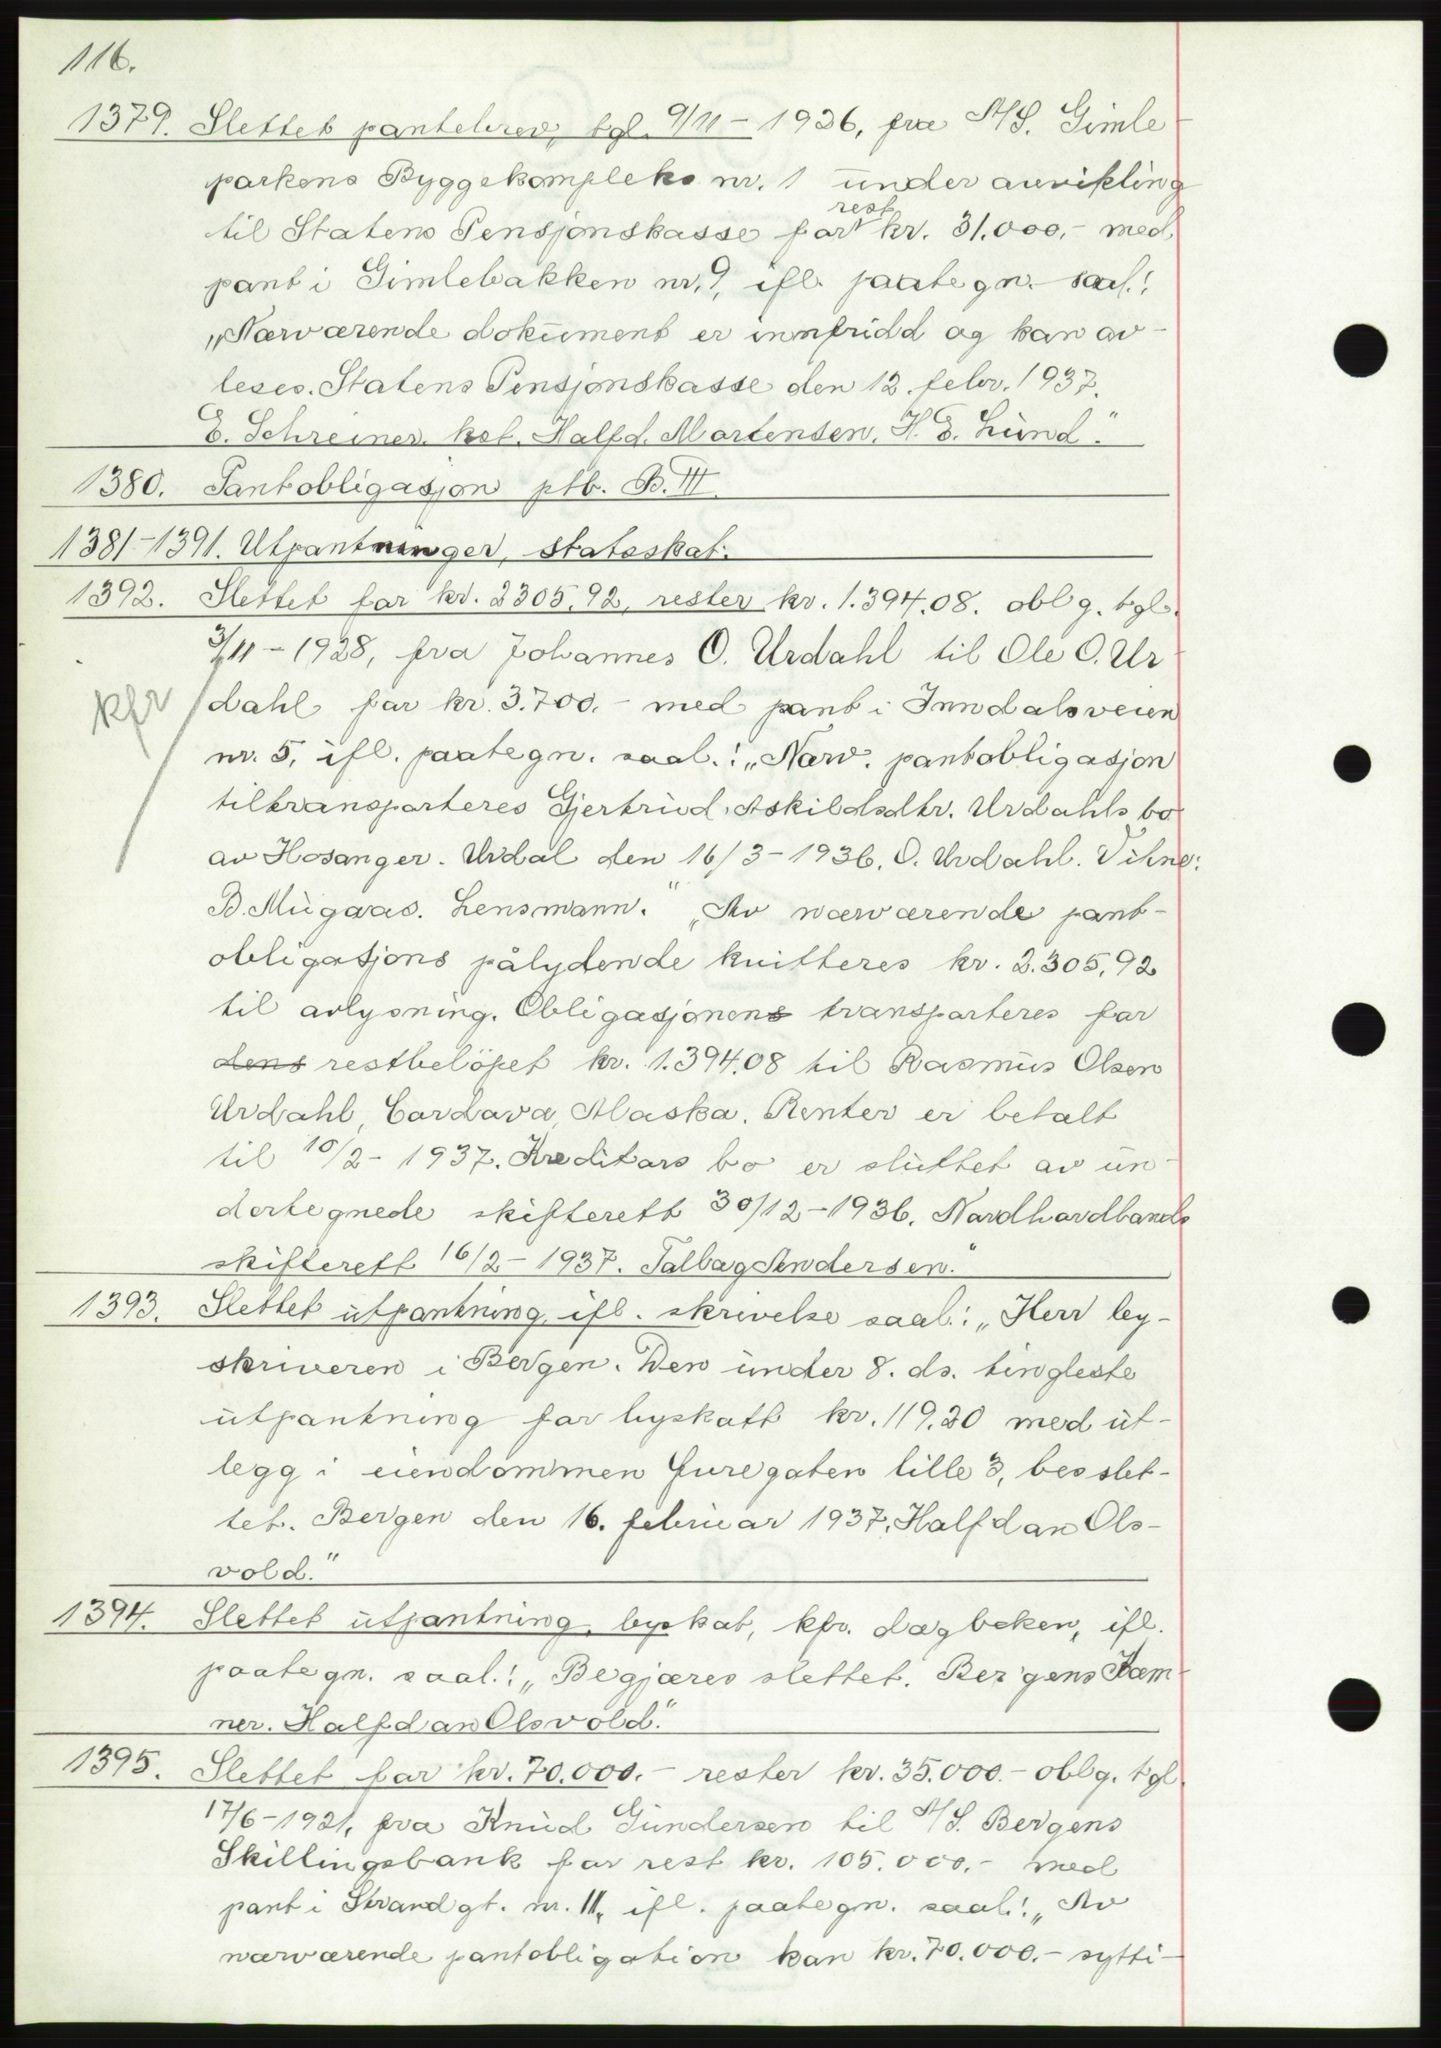 116.
1379. Slettet pantebrev, tgl. 9/11 - 1936, fra A/S. Gimle
parkens Byggekompleks nr. 1 under avvikling
rest
til Statens Pensjonskasse for kr. 31.000,- med
pant i Gimlebakken nr. 9, ifl. paategn. saal.:
„Nærværende dokument er innfridd og kan av-
leses. Statens Pensjonskasse den 12. febr. 1937.
E. Schreiner. kst. Halfd. Martensen. H. E. Lund."
1380. Pantobligasjon ptb. B. III.
1381-1391. Utpantninger, statsskat.
1392. Slettet for kr. 2305,92, rester kr. 1.394,08. oblg. tgl.
3/11 - 1928, fra Johannes O. Urdahl til Ole O. Ur
kfr dahl for kr. 3.700.- med pant i Inndalsveien
nr. 5, ifl. paategn. saal.: „Nærv. pantobligasjon
tiltransporteres Gjertrud Askildsdtr. Urdahls bo
av Hosanger. Urdal den 16/3 - 1936. O. Urdahl. Vitne:
B. Mügaas. Lensmann." „Av nærværende pant-
obligasjons pålydende kvitteres kr. 2.305,92
til avlysning. Obligasjonens transporteres for
dens restbelöpet kr. 1.394,08 til Rasmus Olsen
Urdahl, Cordava, Alaska. Renter er betalt
til 10/2 - 1937. Kreditors bo er sluttet av un-
dertegnede skifterett 30/12 - 1936. Nordhordlands
skifterett 16/2 - 1937. Salbag Andersen."
1393. Slettet utpantning, ifl. skrivelse saal.: „Herr by-
skriveren i Bergen. Den under 8. ds. tingleste
utpantning for byskatt kr. 119.20 med ut-
legg i eiendommen Huregaten lille 3, bes slet-
tet. Bergen den 16. februar 1937. Halfdan Ols-
vold."
1394. Slettet utpantning, byskat, kfr. dagboken, ifl.
paategn. saal.: „Begjæres slettet. Bergens Kæm-
ner. Halfdan Olsvold."
1395. Slettet for kr. 70.000.- rester kr. 35.000.- oblg. tgl
17/6 - 1921, fra Knud Gundersen til A/S. Bergens
Skillingsbank for rest kr. 105.000.- med
pant i Strandgt. nr. 11, ifl. paategn. saal.: „Av
nærværende pantobligation kan kr. 70.000.- sytti-